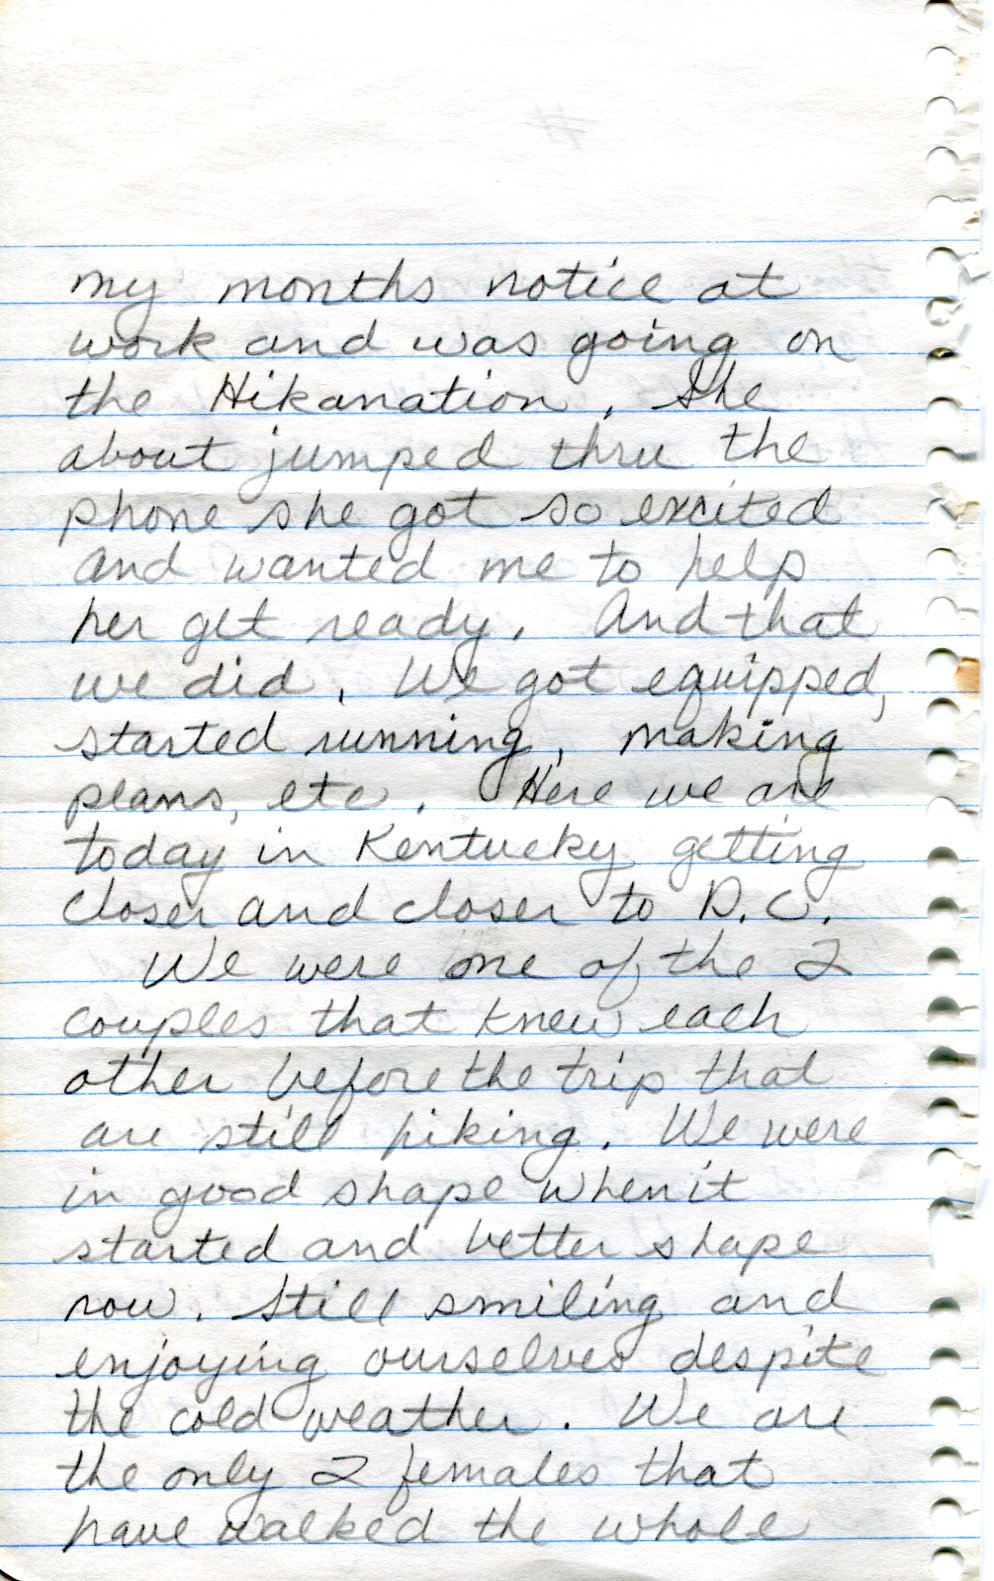 my months notice at
work and was going on
the Hikanation. She
about jumped thru the
phone she got so excited
and wanted me to help
her get ready. And that
we did. We got equipped,
started running, making
plans, etc. Here we are
today in Kentucky getting
closer and closer to D.C.
We were one of the 2
couples that knew each
other before the trip that
are still hiking. We were
in good shape when it
started and better shape
now. Still smiling and
enjoying ourselves despite
the cold weather. We are
the only 2 females that
have walked the whole